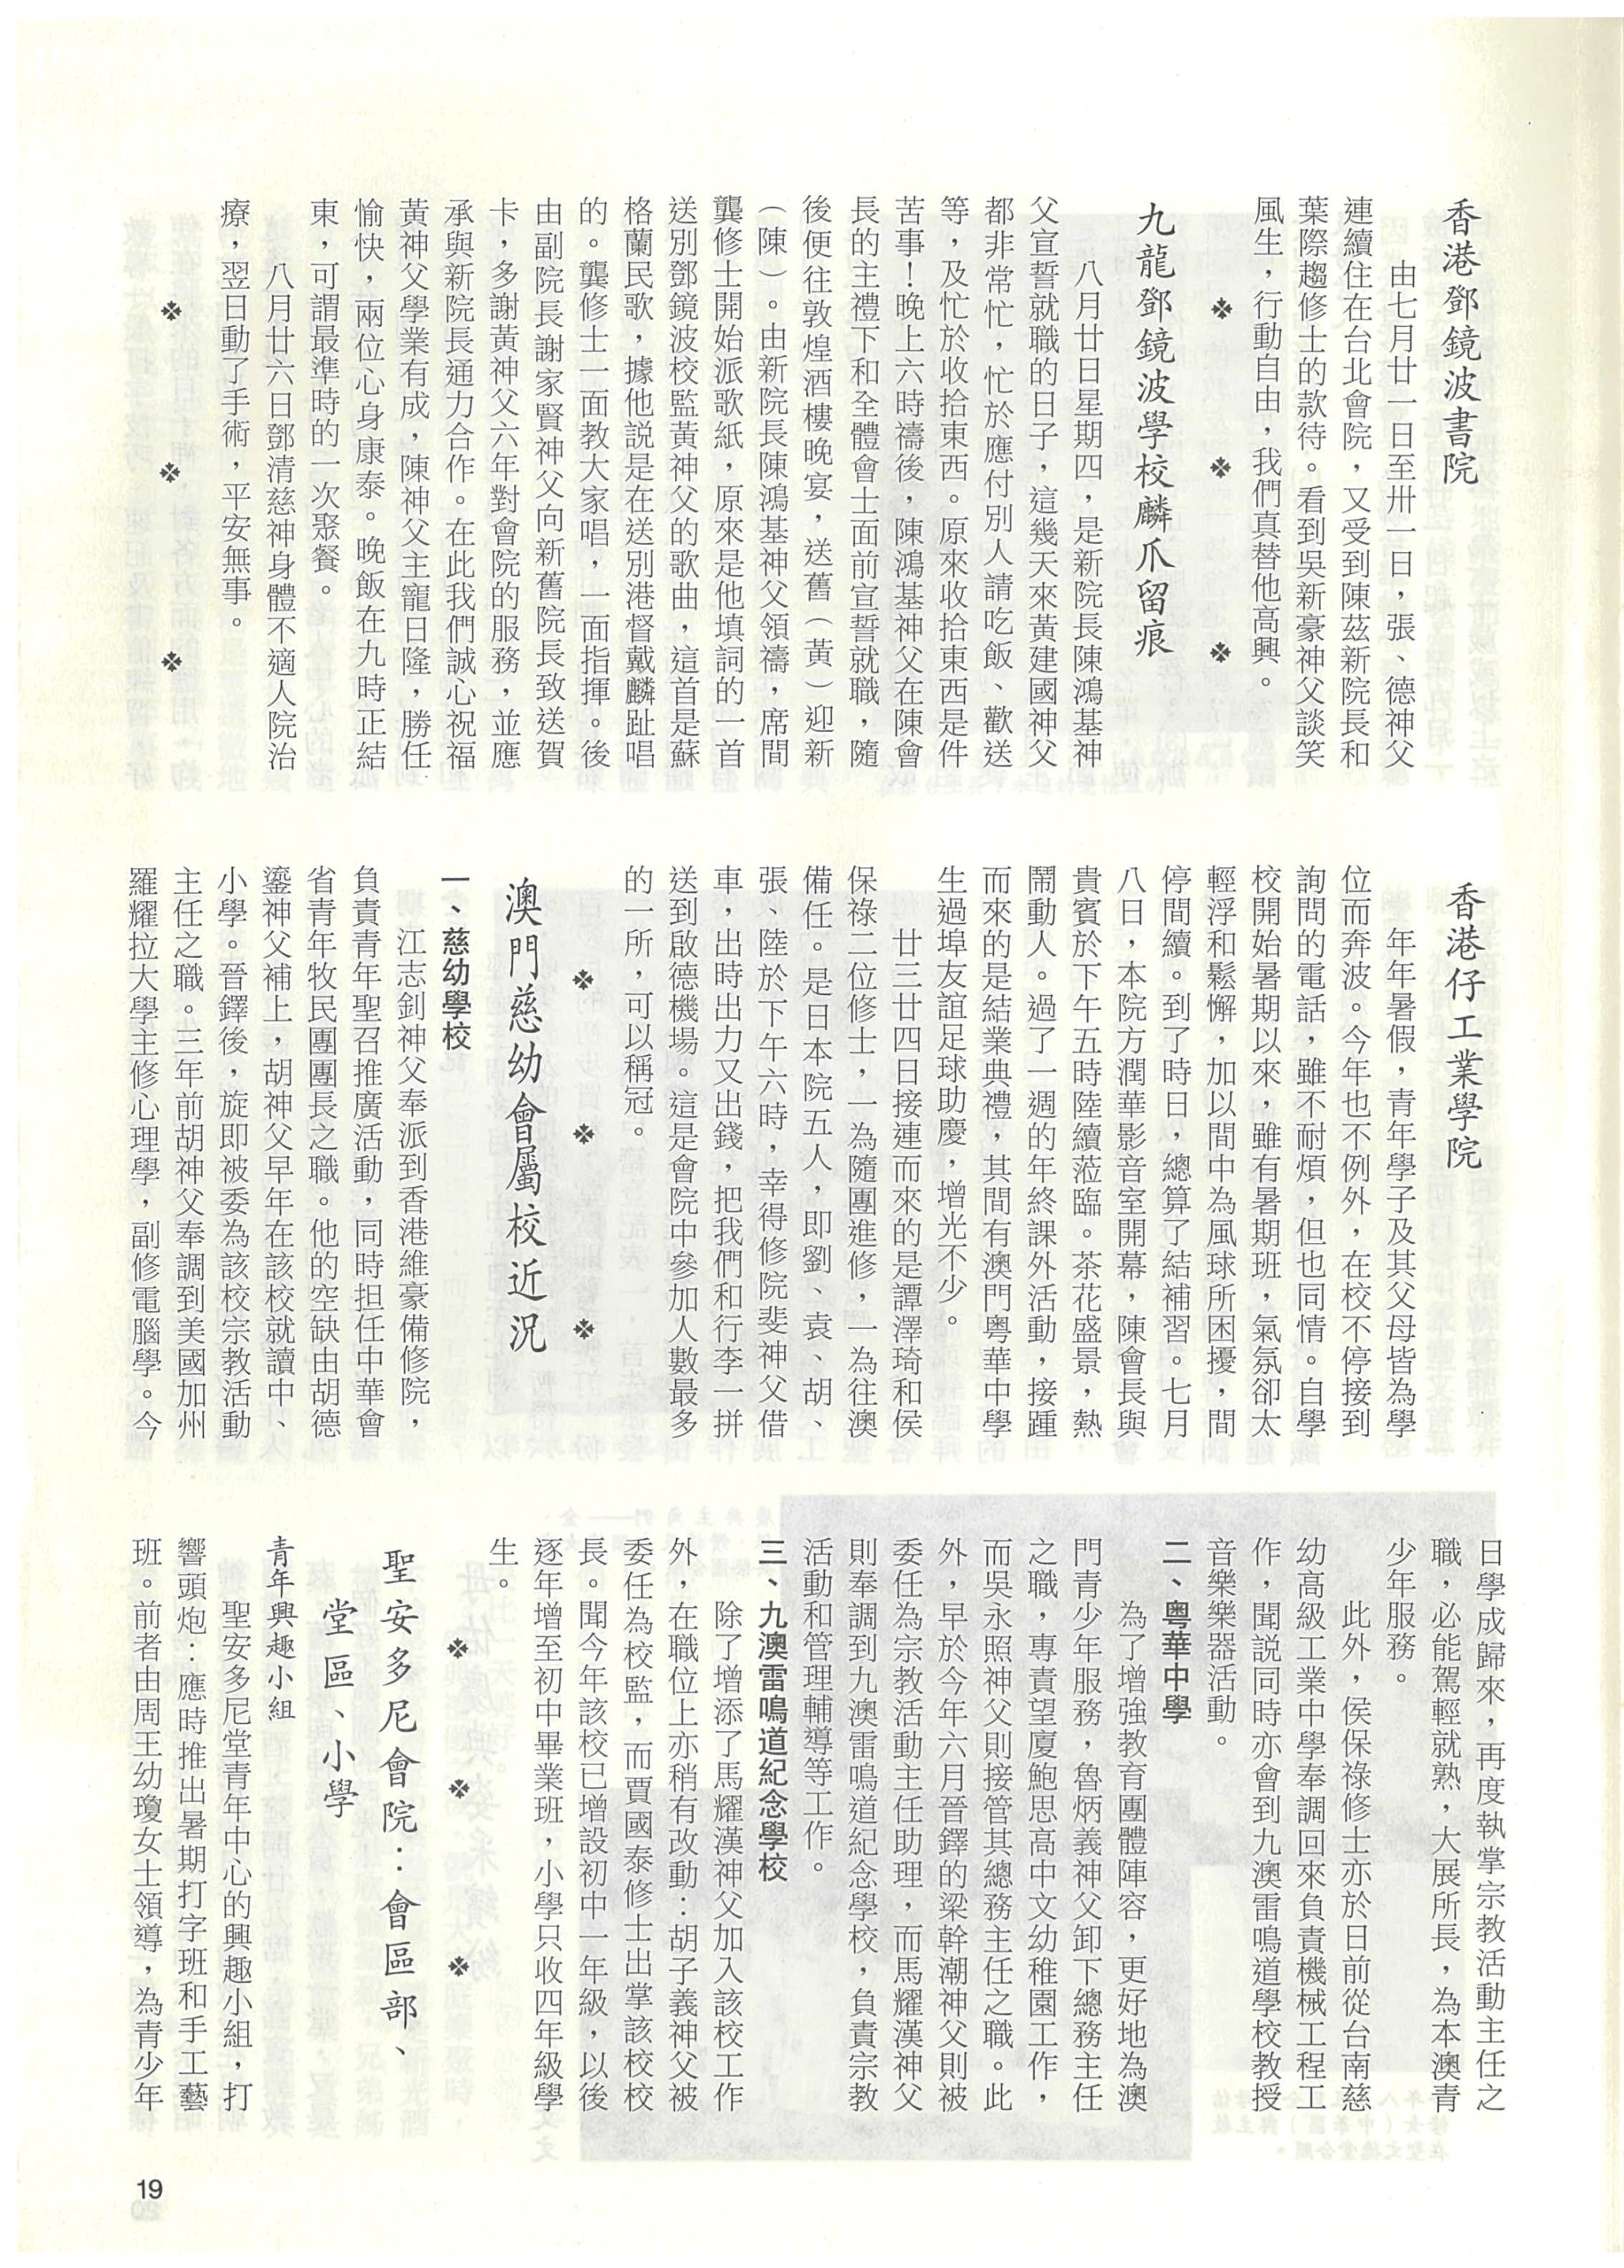 香港鄧鏡波書院
由七月廿一日至卅一日，張、德神父
連續住在台北會院，又受到陳茲新院長和
葉際趨修士的款待。看到吳新豪神父談笑
風生，行動自由，我們真替他高興。
※ ※ ※
九龍鄧鏡波學校麟爪留痕
八月廿日星期四，是新院長陳鴻基神
父宣誓就職的日子，這幾天來黃建國神父
都非常忙，忙於應付別人請吃飯、歡送
等，及忙於收拾東西。原來收拾東西是件
苦事！晚上六時禱後，陳鴻基神父在陳會
長的主禮下和全體會士面前宣誓就職，隨
後便往敦煌酒樓晚宴，送舊（黃）迎新
（陳）。由新院長陳鴻基神父領禱，席間
龔修士開始派歌紙，原來是他填詞的一首
送別鄧鏡波校監黃神父的歌曲，這首是蘇
格蘭民歌，據他説是在送別港督戴麟趾唱
的。龔修士一面教大家唱，一面指揮。後
由副院長謝家賢神父向新舊院長致送賀
卡，多謝黃神父六年對會院的服務，並應
承與新院長通力合作。在此我們誠心祝福
黃神父學業有成，陳神父主寵日隆，勝任
愉快，兩位心身康泰。晚飯在九時正結
東，可謂最準時的一次聚餐。
八月廿六日鄧清慈神身體不適人院治
療，翌日動了手術，平安無事。
※ ※ ※
香港仔工業學院
年年暑假，青年學子及其父母皆為學
位而奔波。今年也不例外，在校不停接到
詢問的電話，雖不耐煩，但也同情。自學
校開始暑期以來，雖有暑期班，氣氛卻太
輕浮和鬆懈，加以間中為風球所困擾，間
停間續。到了時日，總算了結補習。七月
八日，本院方潤華影音室開幕，陳會長與
貴賓於下午五時陸續蒞臨。茶花盛景，熱
鬧動人。過了一週的年終課外活動，接踵
而來的是結業典禮，其間有澳門粵華中學
生過埠友誼足球助慶，增光不少。
廿三廿四日接連而來的是譚澤琦和侯
保祿二位修士，一為隨團進修，一為往澳
備任。是日本院五人，即劉、袁、胡、
張、陸於下午六時，幸得修院斐神父借
車，出時出力又出錢，把我們和行李一拼
送到啟德機場。這是會院中參加人數最多
的一所，可以稱冠。
※ ※ ※
澳門慈幼會屬校近況
一、慈幼學校
江志釗神父奉派到香港維豪備修院，
負責青年聖召推廣活動，同時担任中華會
省青年牧民團團長之職。他的空缺由胡德
鎏神父補上，胡神父早年在該校就讀中、
小學。晉鐸後，旋即被委為該校宗教活動
主任之職。三年前胡神父奉調到美國加州
羅耀拉大學主修心理學，副修電腦學。今
日學成歸來，再度執掌宗教活動主任之
職，必能駕輕就熟，大展所長，為本澳青
少年服務。
此外，侯保祿修士亦於日前從台南慈
幼高級工業中學奉調回來負責機械工程工
作，聞説同時亦會到九澳雷鳴道學校教授
音樂樂器活動。
二、粵華中學
為了增強教育團體陣容，更好地為澳
門青少年服務，魯炳義神父卸下總務主任
之職，專責望廈鮑思高中文幼稚園工作，
而吳永照神父則接管其總務主任之職。此
外，早於今年六月晉鐸的梁幹潮神父則被
委任為宗教活動主任助理，而馬耀漢神父
則奉調到九澳雷鳴道紀念學校，負責宗教
活動和管理輔導等工作。
三、九澳雷鳴道紀念學校
除了增添了馬耀漢神父加入該校工作
外，在職位上亦稍有改動：胡子義神父被
委任為校監，而賈國泰修士出掌該校校
長。聞今年該校已增設初中一年級，以後
逐年增至初中畢業班，小學只收四年級學
生。
※ ※ ※
聖安多尼會院：會區部、
堂區、小學
青年興趣小組
聖安多尼堂青年中心的興趣小組，打
響頭炮：應時推出暑期打字班和手工藝
班。前者由周王幼瓊女士領導，為青少年
19